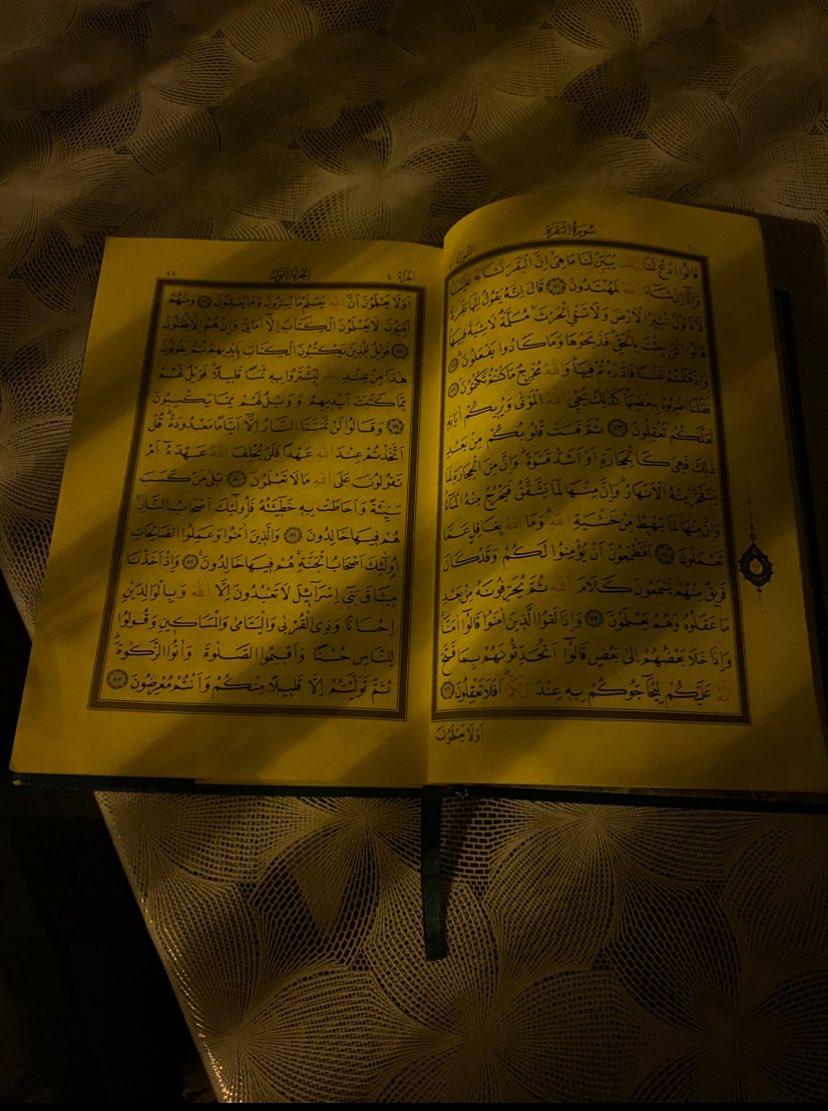 سُورَةُ الْبَقَرَةِ
قَالُوا ادْعُ لَنَا رَبَّكَ يُبَيِّنْ لَنَا مَا هِيَ اِنَّ الْبَقَرَ تَشَابَهَ عَلَيْنَا
وَاِنَّٓا اِنْ شَٓاءَ اللّٰهُ لَمُهْتَدُونَ ٧٠ قَالَ اِنَّهُ يَقُولُ اِنَّهَا بَقَرَةٌ
لَا ذَلُولٌ تُثِيرُ الْاَرْضَ وَلَا تَسْقِي الْحَرْثَ مُسَلَّمَةٌ لَا شِيَةَ فِيهَا
قَالُوا الْـٰٔنَ جِئْتَ بِالْحَقِّ فَذَبَحُوهَا وَمَا كَادُوا يَفْعَلُونَ ٧١
وَاِذْ قَتَلْتُمْ نَفْسًا فَادَّارَءْتُمْ فِيهَا وَاللّٰهُ مُخْرِجٌ مَا كُنْتُمْ تَكْتُمُونَ ٧٢
فَقُلْنَا اضْرِبُوهُ بِبَعْضِهَا كَذٰلِكَ يُحْيِي اللّٰهُ الْمَوْتٰى وَيُرِيكُمْ اٰيَاتِهِ
لَعَلَّكُمْ تَعْقِلُونَ ٧٣ ثُمَّ قَسَتْ قُلُوبُكُمْ مِنْ بَعْدِ
ذٰلِكَ فَهِيَ كَالْحِجَارَةِ اَوْ اَشَدُّ قَسْوَةً وَاِنَّ مِنَ الْحِجَارَةِ لَمَا
يَتَفَجَّرُ مِنْهُ الْاَنْهَارُ وَاِنَّ مِنْهَا لَمَا يَشَّقَّقُ فَيَخْرُجُ مِنْهُ الْمَٓاءُ
وَاِنَّ مِنْهَا لَمَا يَهْبِطُ مِنْ خَشْيَةِ اللّٰهِ وَمَا اللّٰهُ بِغَافِلٍ عَمَّا
تَعْمَلُونَ ٧٤ اَفَتَطْمَعُونَ اَنْ يُؤْمِنُوا لَكُمْ وَقَدْ كَانَ
فَرِيقٌ مِنْهُمْ يَسْمَعُونَ كَلَامَ اللّٰهِ ثُمَّ يُحَرِّفُونَهُ مِنْ بَعْدِ
مَا عَقَلُوهُ وَهُمْ يَعْلَمُونَ ٧٥ وَاِذَا لَقُوا الَّذِينَ اٰمَنُوا قَالُٓوا اٰمَنَّا
وَاِذَا خَلَا بَعْضُهُمْ اِلٰى بَعْضٍ قَالُٓوا اَتُحَدِّثُونَهُمْ بِمَا فَتَحَ
اللّٰهُ عَلَيْكُمْ لِيُحَٓاجُّوكُمْ بِهِ عِنْدَ رَبِّكُمْ اَفَلَا تَعْقِلُونَ ٧٦
اَوَلَا يَعْلَمُونَ
الجزء ١
١١
اَوَلَا يَعْلَمُونَ اَنَّ اللّٰهَ يَعْلَمُ مَا يُسِرُّونَ وَمَا يُعْلِنُونَ ٧٧ وَمِنْهُمْ
اُمِّيُّونَ لَا يَعْلَمُونَ الْكِتَابَ اِلَّٓا اَمَانِيَّ وَاِنْ هُمْ اِلَّا يَظُنُّونَ
٧٨ فَوَيْلٌ لِلَّذِينَ يَكْتُبُونَ الْكِتَابَ بِاَيْدِيهِمْ ثُمَّ يَقُولُونَ
هٰذَا مِنْ عِنْدِ اللّٰهِ لِيَشْتَرُوا بِهِ ثَمَنًا قَلِيلًا فَوَيْلٌ لَهُمْ
مِمَّا كَتَبَتْ اَيْدِيهِمْ وَوَيْلٌ لَهُمْ مِمَّا يَكْسِبُونَ
٧٩ وَقَالُوا لَنْ تَمَسَّنَا النَّارُ اِلَّٓا اَيَّامًا مَعْدُودَةً قُلْ
اَتَّخَذْتُمْ عِنْدَ اللّٰهِ عَهْدًا فَلَنْ يُخْلِفَ اللّٰهُ عَهْدَهُ اَمْ
تَقُولُونَ عَلَى اللّٰهِ مَا لَا تَعْلَمُونَ ٨٠ بَلٰى مَنْ كَسَبَ
سَيِّئَةً وَاَحَاطَتْ بِهِ خَطِيٓئَتُهُ فَاُولٰٓئِكَ اَصْحَابُ النَّارِ
هُمْ فِيهَا خَالِدُونَ ٨١ وَالَّذِينَ اٰمَنُوا وَعَمِلُوا الصَّالِحَاتِ
اُولٰٓئِكَ اَصْحَابُ الْجَنَّةِ هُمْ فِيهَا خَالِدُونَ ٨٢ وَاِذْ اَخَذْنَا
مِيثَاقَ بَنِٓي اِسْرَٓائِيلَ لَا تَعْبُدُونَ اِلَّا اللّٰهَ وَبِالْوَالِدَيْنِ
اِحْسَانًا وَذِي الْقُرْبٰى وَالْيَتَامٰى وَالْمَسَاكِينِ وَقُولُوا
لِلنَّاسِ حُسْنًا وَاَقِيمُوا الصَّلٰوةَ وَاٰتُوا الزَّكٰوةَ
ثُمَّ تَوَلَّيْتُمْ اِلَّا قَلِيلًا مِنْكُمْ وَاَنْتُمْ مُعْرِضُونَ ٨٣